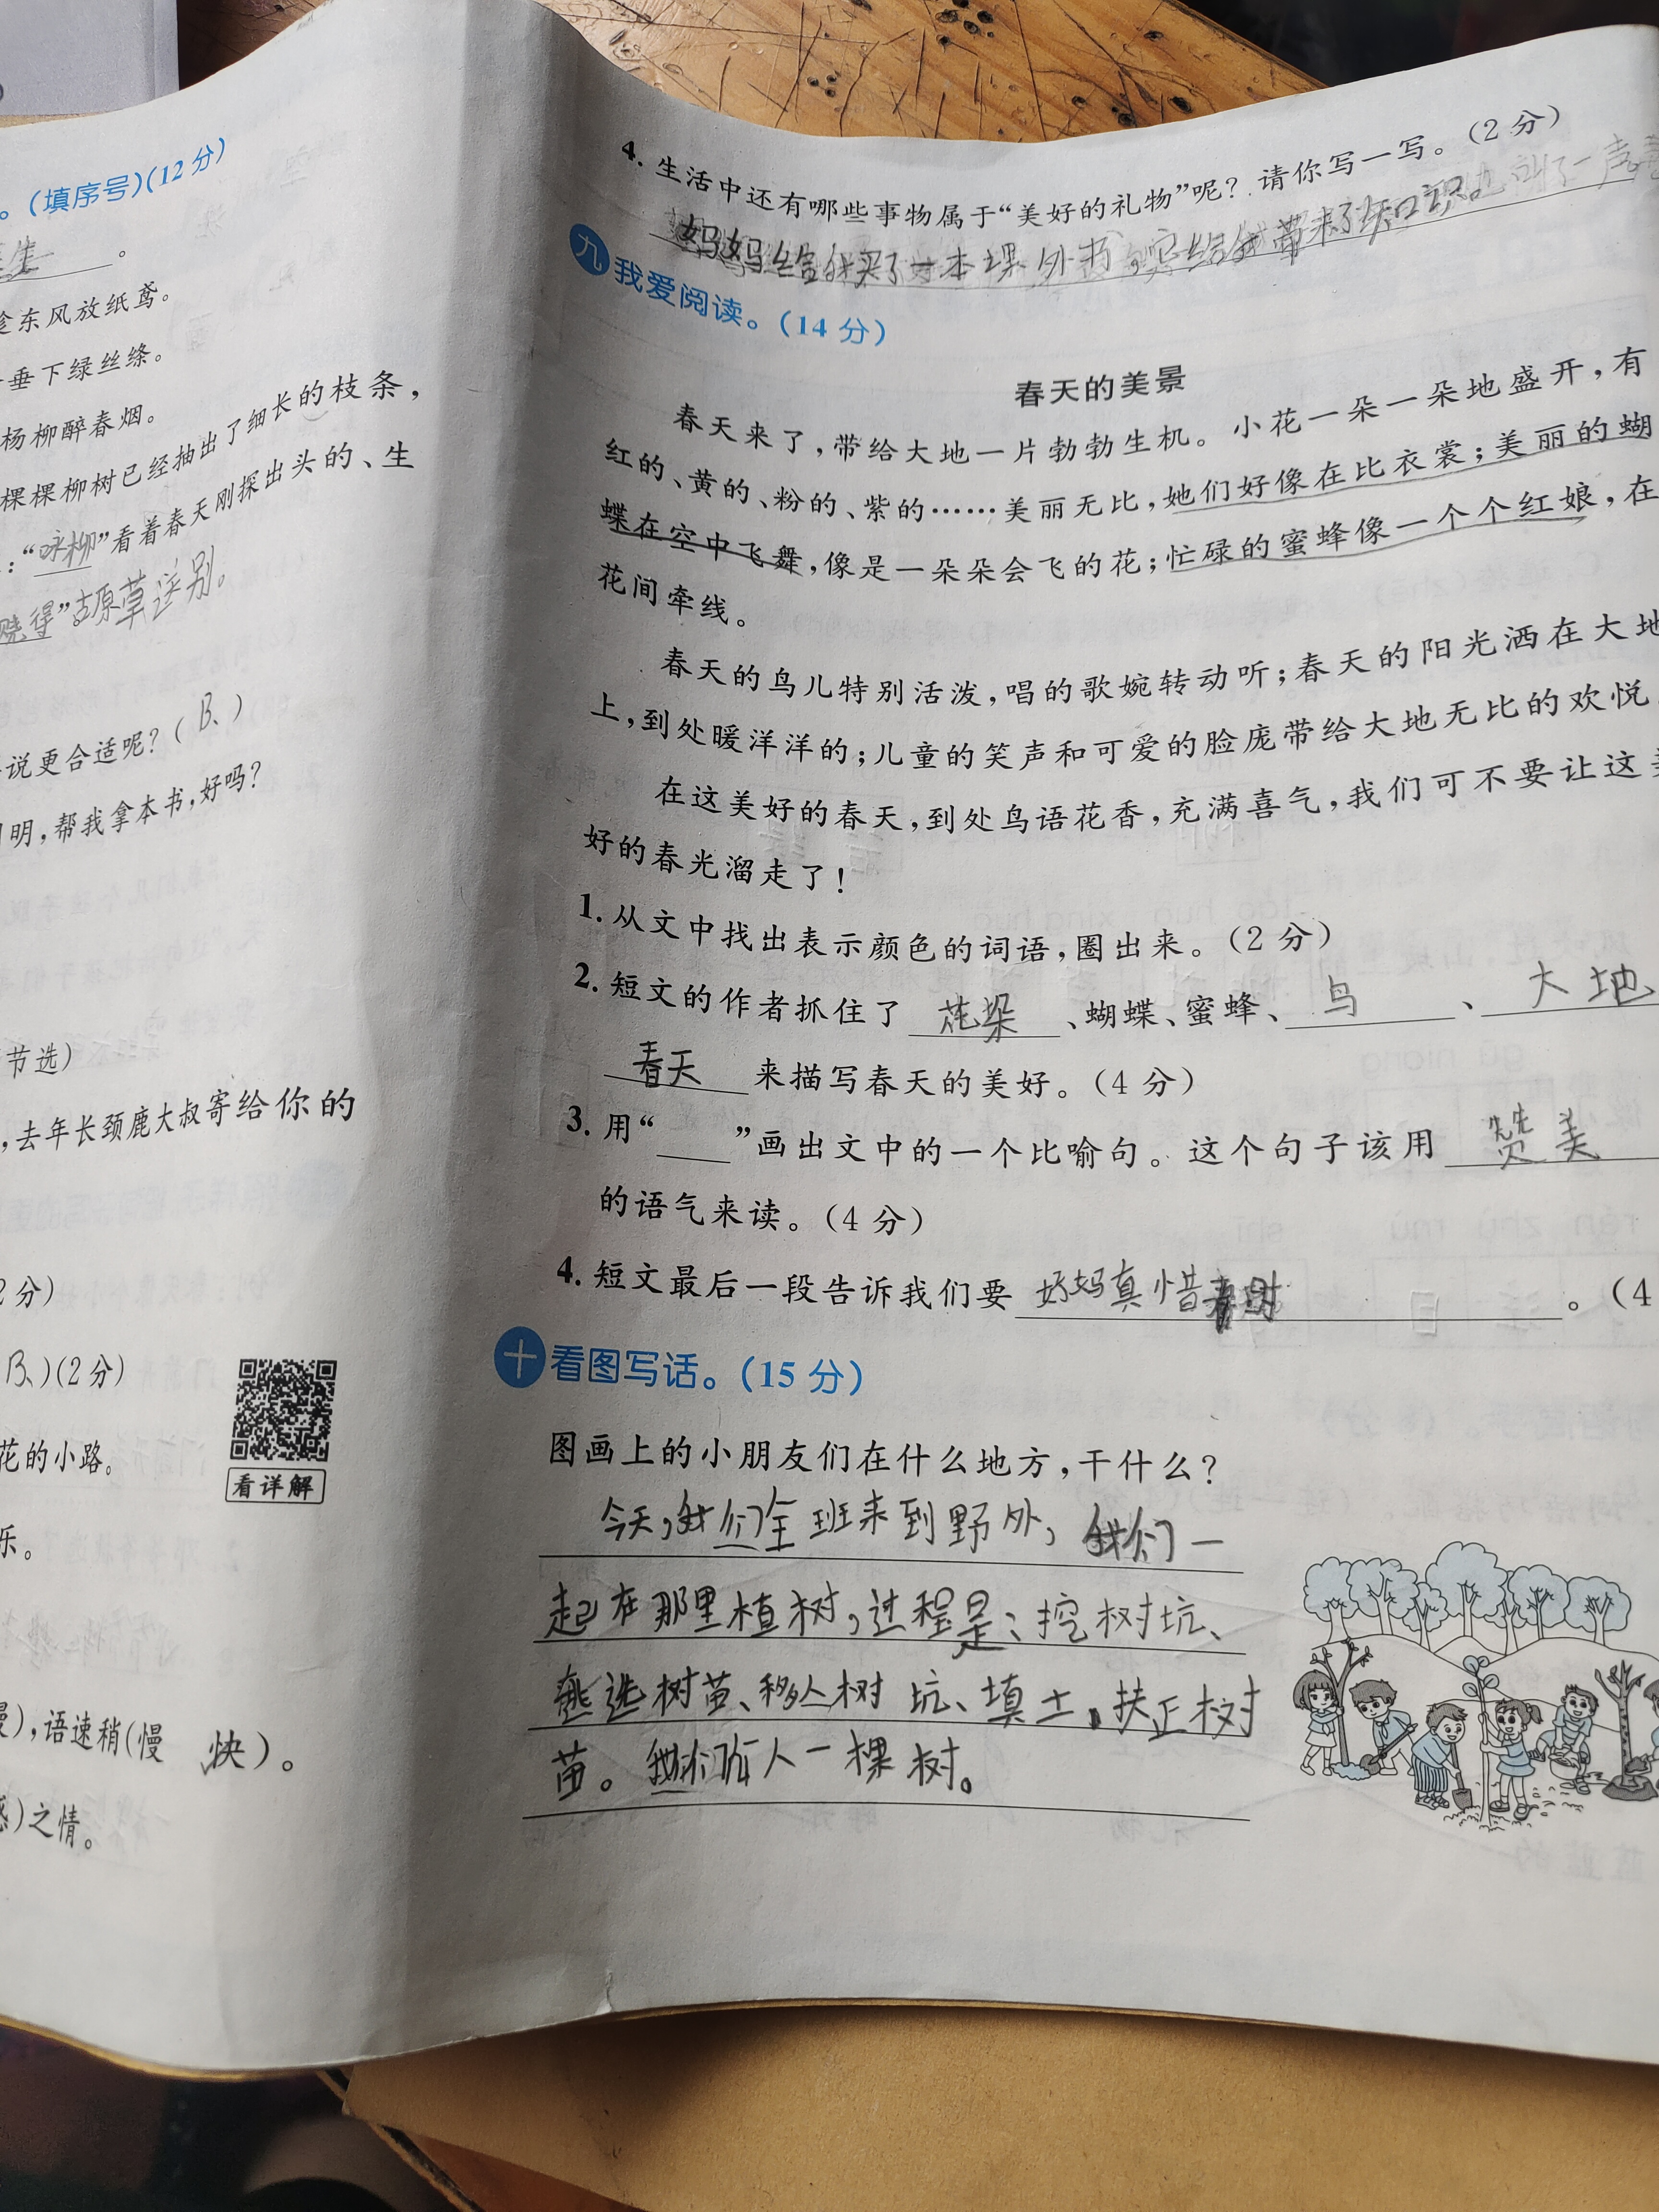 。(填序号)(12分)
。
东风放纸鸢。
垂下绿丝绦。
杨柳醉春烟。
棵棵柳树已经抽出了细长的枝条，
：“咏柳”看着春天刚探出头的、生
晓得”古原草送别。
说更合适呢？( B、)
明，帮我拿本书，好吗？
节选)
，去年长颈鹿大叔寄给你的
2分)
B、)(2分)
花的小路。
看详解
乐。
慢)，语速稍(慢 快)。
)之情。
4. 生活中还有哪些事物属于“美好的礼物”呢？请你写一写。(2分)
妈妈给我买了一本课外书，它给我带来了知识。
九 我爱阅读。(14分)
春天的美景
春天来了，带给大地一片勃勃生机。小花一朵一朵地盛开，有
红的、黄的、粉的、紫的……美丽无比，她们好像在比衣裳；美丽的蝴
蝶在空中飞舞，像是一朵朵会飞的花；忙碌的蜜蜂像一个个红娘，在
花间牵线。
春天的鸟儿特别活泼，唱的歌婉转动听；春天的阳光洒在大地
上，到处暖洋洋的；儿童的笑声和可爱的脸庞带给大地无比的欢悦
在这美好的春天，到处鸟语花香，充满喜气，我们可不要让这美
好的春光溜走了！
1. 从文中找出表示颜色的词语，圈出来。(2分)
2. 短文的作者抓住了 花朵 、蝴蝶、蜜蜂、 鸟 、 大地
春天 来描写春天的美好。(4分)
3. 用“＿＿”画出文中的一个比喻句。这个句子该用 赞美
的语气来读。(4分)
4. 短文最后一段告诉我们要 好妈真惜春时 。(4
十 看图写话。(15分)
图画上的小朋友们在什么地方，干什么？
今天，我们全班来到野外，我们一
起在那里植树，过程是：挖树坑、
选树苗、移入树坑、填土、扶正树
苗。我们人一棵树。